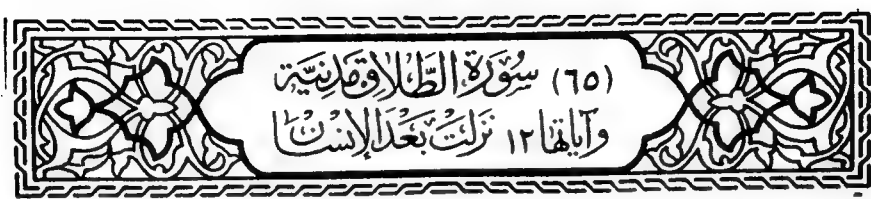 (٦٥) سُوۡرَةِ الطَّلَاقِ مَدَنِيَّةٌ
وَآيَاتُهَا ١٢ نَزَلَتْ بَعْدَ الإِنْسَانِ